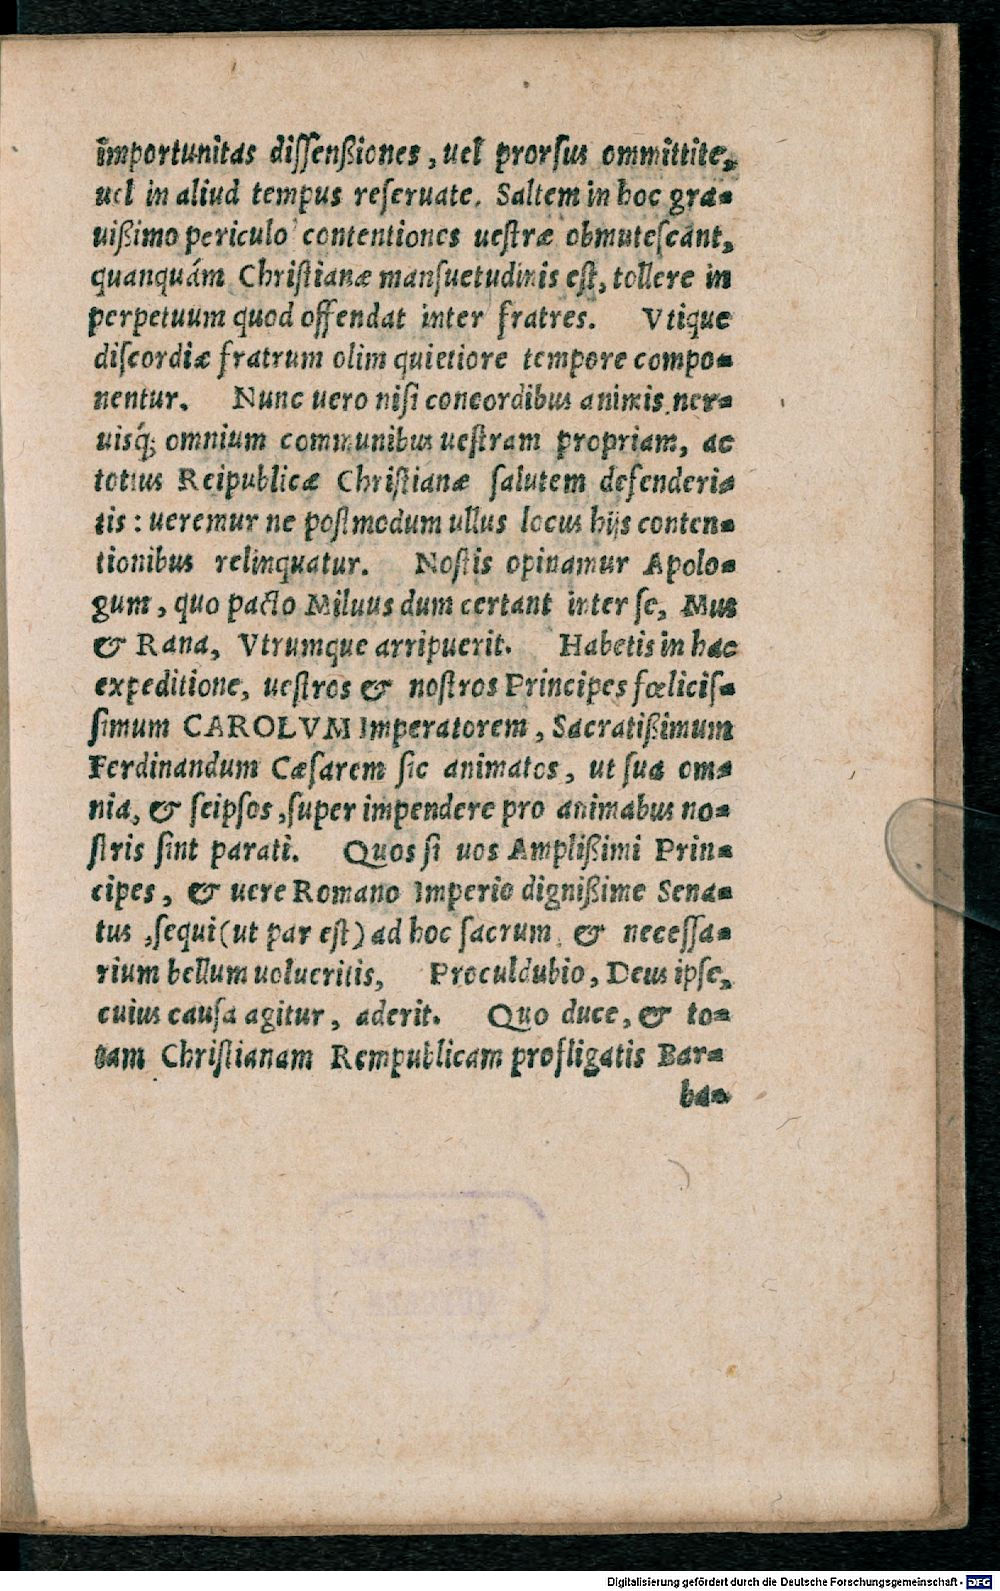 importunitas dissenßiones, uel prorsus ommittite,
uel in aliud tempus reseruate. Saltem in hoc gra-
uißimo periculo contentiones uestræ obmutescant,
quanquám Christianæ mansuetudinis est, tollere in
perpetuum quod offendat inter fratres. Vtique
discordiæ fratrum olim quietiore tempore compo-
nentur. Nunc uero nisi concordibus animis ner-
uisq́; omnium communibus uestram propriam, ac
totius Reipublicæ Christianæ salutem defenderi-
tis: ueremur ne postmodum ullus locus hijs conten-
tionibus relinquatur. Nostis opinamur Apolo-
gum, quo pacto Miluus dum certant inter se, Mus
& Rana, Vtrumque arripuerit. Habetis in hac
expeditione, uestros & nostros Principes fœlicis-
simum CAROLVM Imperatorem, Sacratißimum
Ferdinandum Cæsarem sic animatos, ut sua om-
nia, & seipsos, super impendere pro animabus no-
stris sint parati. Quos si uos Amplißimi Prin-
cipes, & uere Romano Imperio dignißime Sena-
tus, sequi (ut par est) ad hoc sacrum & necessa-
rium bellum uolueritis, Proculdubio, Deus ipse,
cuius causa agitur, aderit. Quo duce, & to-
tam Christianam Rempublicam profligatis Bar-
ba-
Digitalisierung gefördert durch die Deutsche Forschungsgemeinschaft - DFG